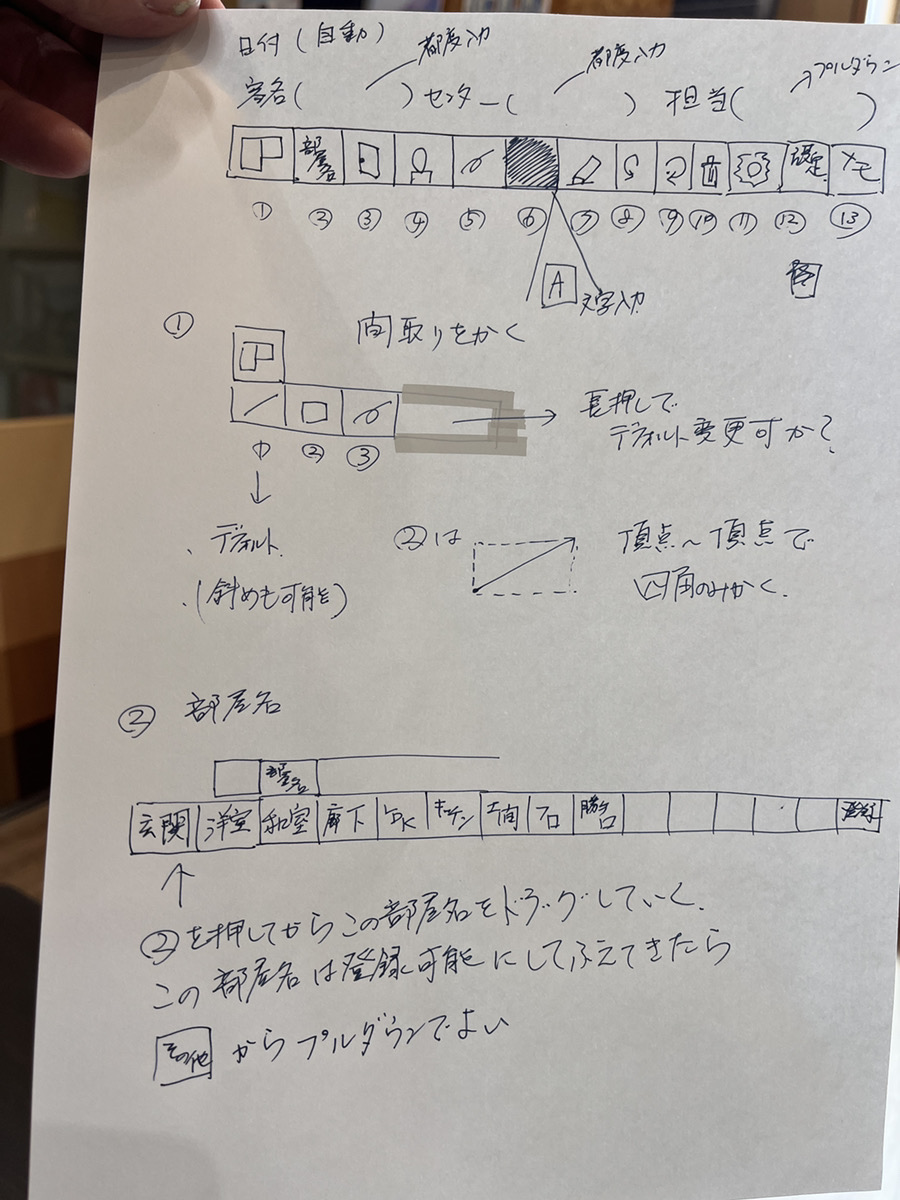 日付(自動)
都度入力
都度入力
プルダウン
客名(　　　)センター(　　　)担当(　　　)
部屋名
設定
メモ
① ② ③ ④ ⑤ ⑥ ⑦ ⑧ ⑨ ⑩ ⑪ ⑫ ⑬
A
文字入力
① 間取りをかく
① ② ③
長押しで
デフォルト変更可か?
・デフォルト.
・(斜めも可能)
②は
頂点〜頂点で
四角のみかく.
② 部屋名
部屋名
玄関 洋室 和室 廊下 キッチン 勝手口
②を押してからこの部屋名をドラッグしていく.
この部屋名は登録可能にしてふえてきたら
その他 からプルダウンでよい